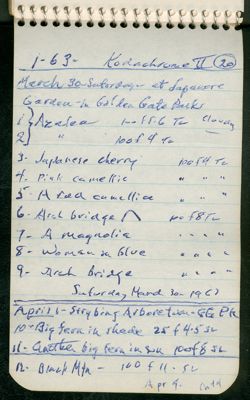 1-63- Kodachrome II (20)
March 30 Saturday- at Japanese
Garden- in Golden Gate Park
1} Azalea 100 f 5.6 Tu cloudy
2} " 100 f 4 Tu
3- Japanese cherry 100 f 4 Tu
4- Pink camellia " " "
5- A red camellia " " "
6- Arch bridge 100 f 8 Tu
7- A magnolia " " "
8- Woman in blue " " "
9- Arch bridge " " "
Saturday March 30- 1963
April 6- Strybing Arboretum- GG Pk
10- Big fern in shade 25 f 4.5 su
11- Another big fern in sun 100 f 8 su
12- Black Mtn - 100 f 11 - su
Apr 9-